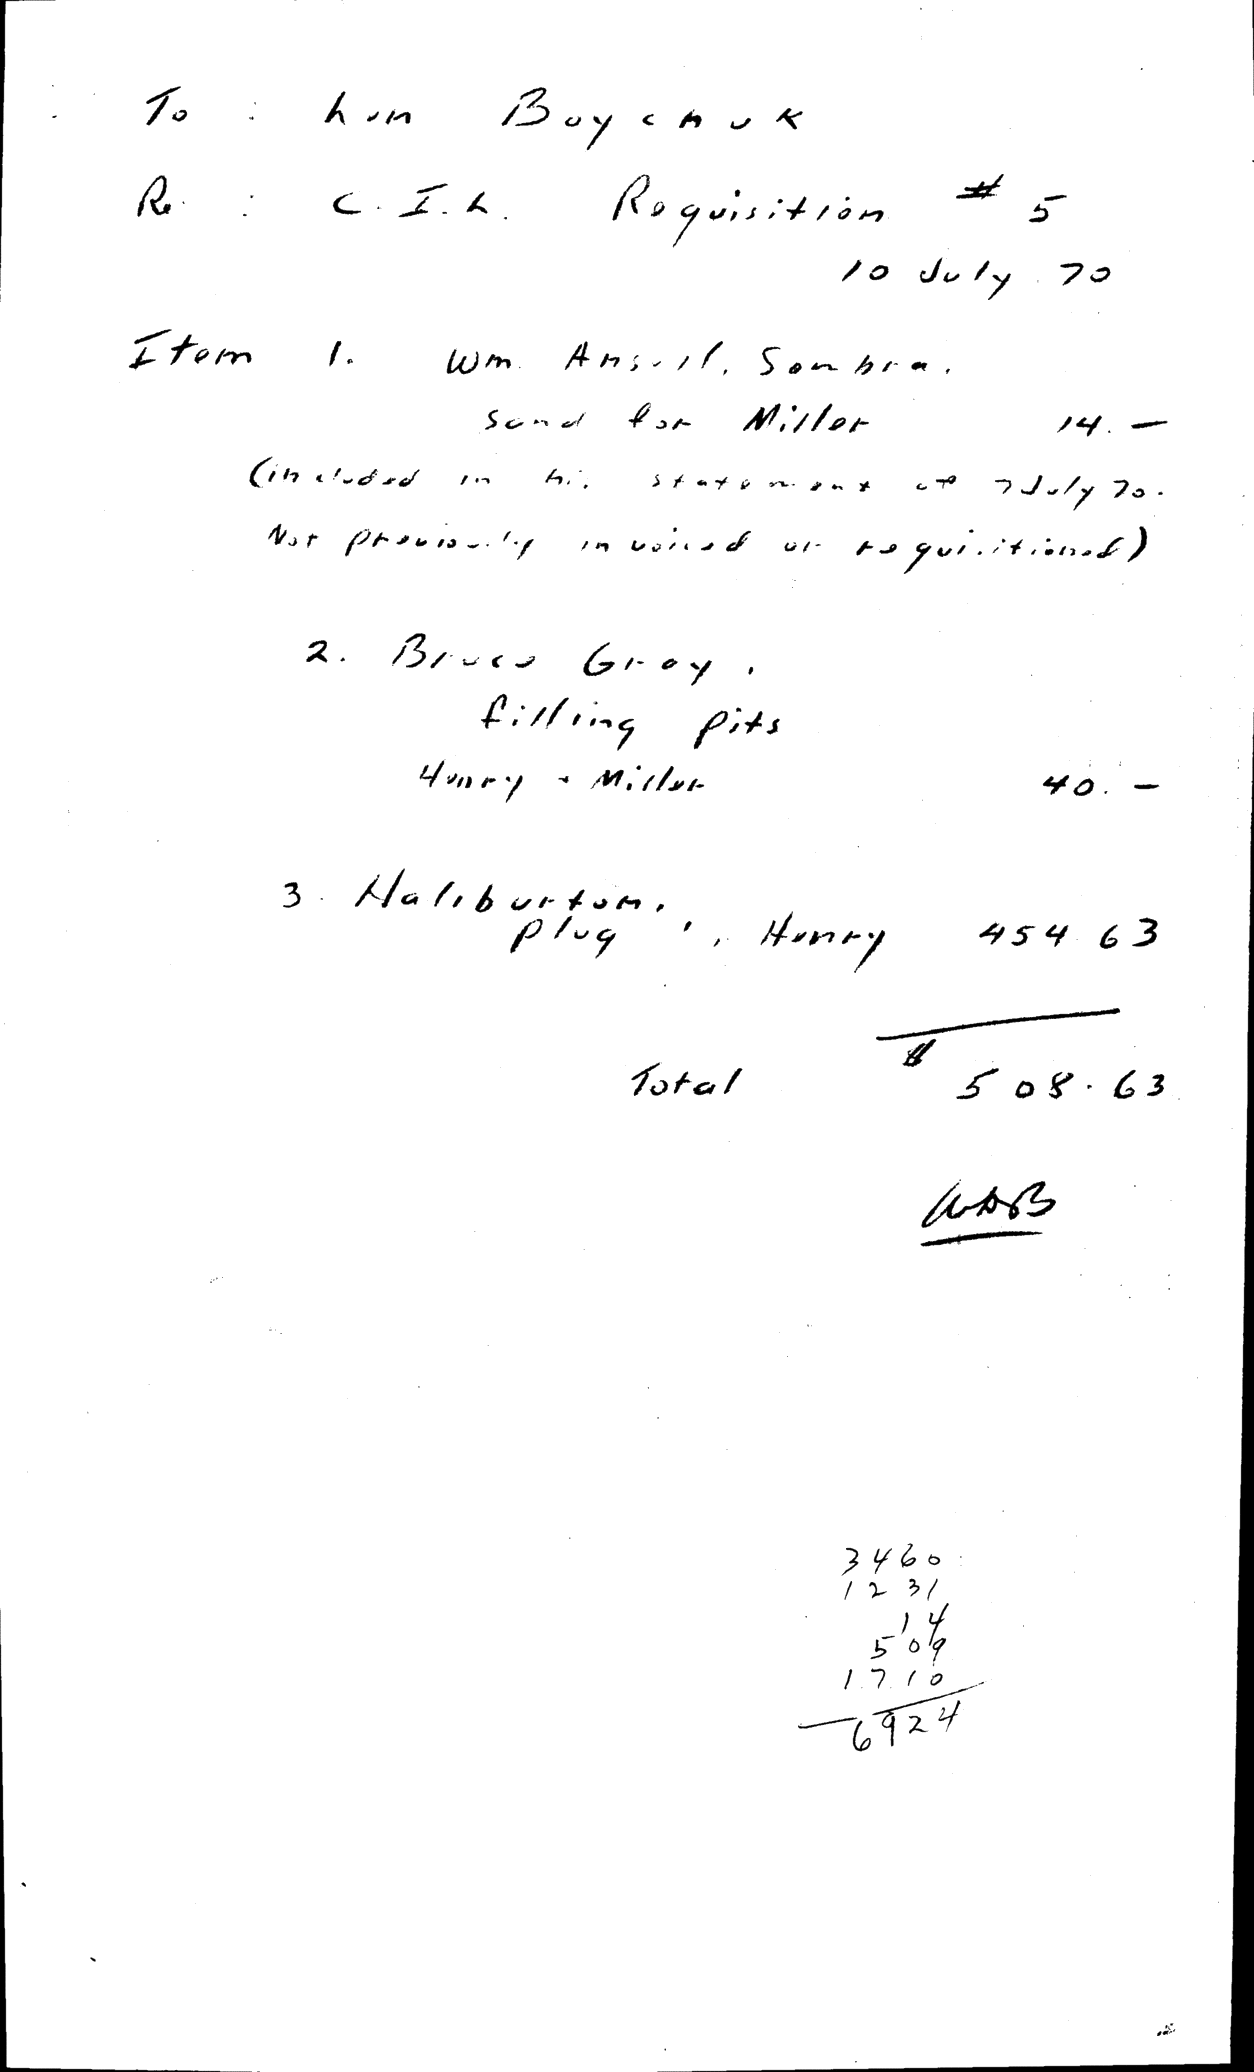 To : Len Boychuk
Re : C.I.L. Requisition # 5
10 July 70
Item 1. Wm. Ansell, Sombra.
sand for Miller 14. —
(included in his statement of 7 July 70.
Not previously invoiced or requisitioned)
2. Bruce Gray,
filling pits
Henry + Miller 40. —
3. Haliburton,
plug , Henry 454 63
Total $ 508.63
3460
1231
14
509
1710
6924